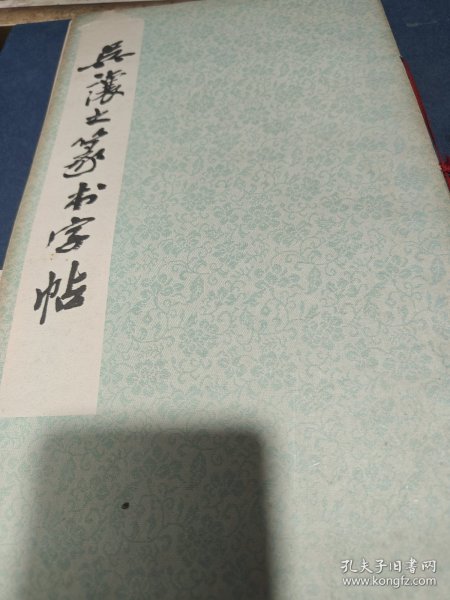 吴让之篆书字帖
孔夫子旧书网
www.kongfz.com